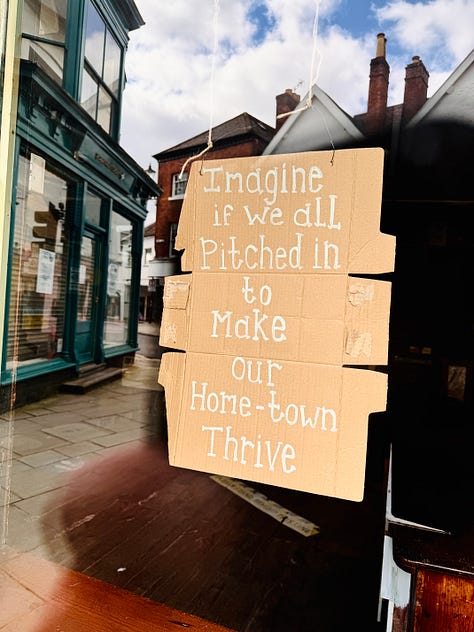 Imagine
if we all
Pitched in
to
Make
our
Home-town
Thrive